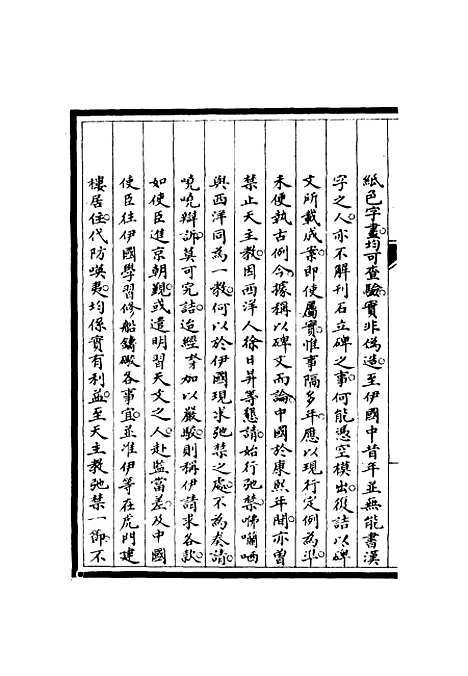 紙色字畫。均可查驗。實非偽造。至伊國中昔年並無能書漢
字之人。亦不解刊石立碑之事。何能憑空模出。復詰以碑
文所載成案。即使屬實。惟事隔多年。應以現行定例為準。
未便執古例今。據稱以碑文而論。中國於康熙年間。亦曾
禁止天主教。因西洋人徐日昇等懇請。始行弛禁。咈囒哂
與西洋同為一教。何以於伊國現求弛禁之處。不為奏請。
嘵嘵辯訴。莫可究詰。迨經奴才加以嚴駁。則稱伊請求各款。
如使臣進京朝覲。或遣明習天文之人。赴監當差。及中國
使臣往伊國學習修船鑄礮各事宜。並准伊等在虎門建
樓居住。代防嘆夷。均係實有利益。至天主教弛禁一節。不